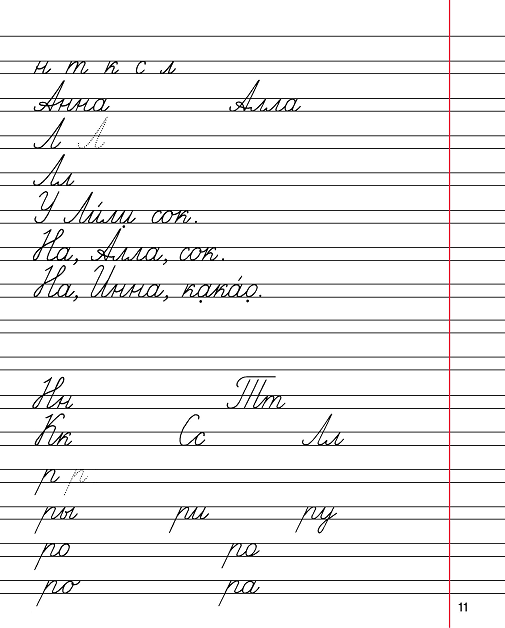 н т к с л
Анна Алла
Л Л
Лл
У Ли́лы сок.
На, Алла, сок.
На, Инна, кака́о.
Нн Тт
Кк Сс Лл
р р
ры ри ру
ро ро
ро ра
11